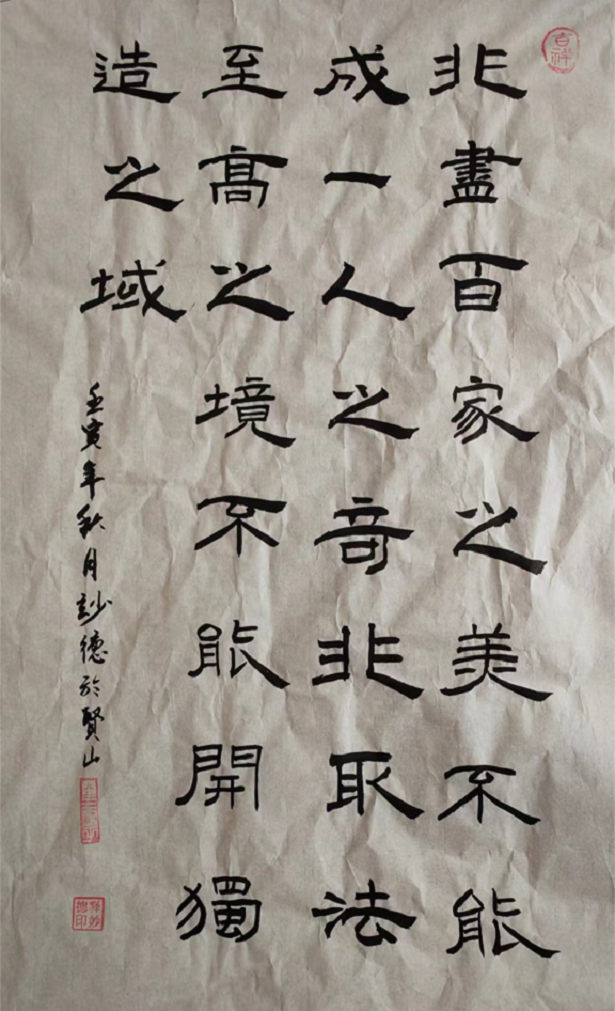 非盡百家之美不能
成一人之奇非取法
至高之境不能開獨
造之域
壬寅年秋月妙德於賢山
吉祥